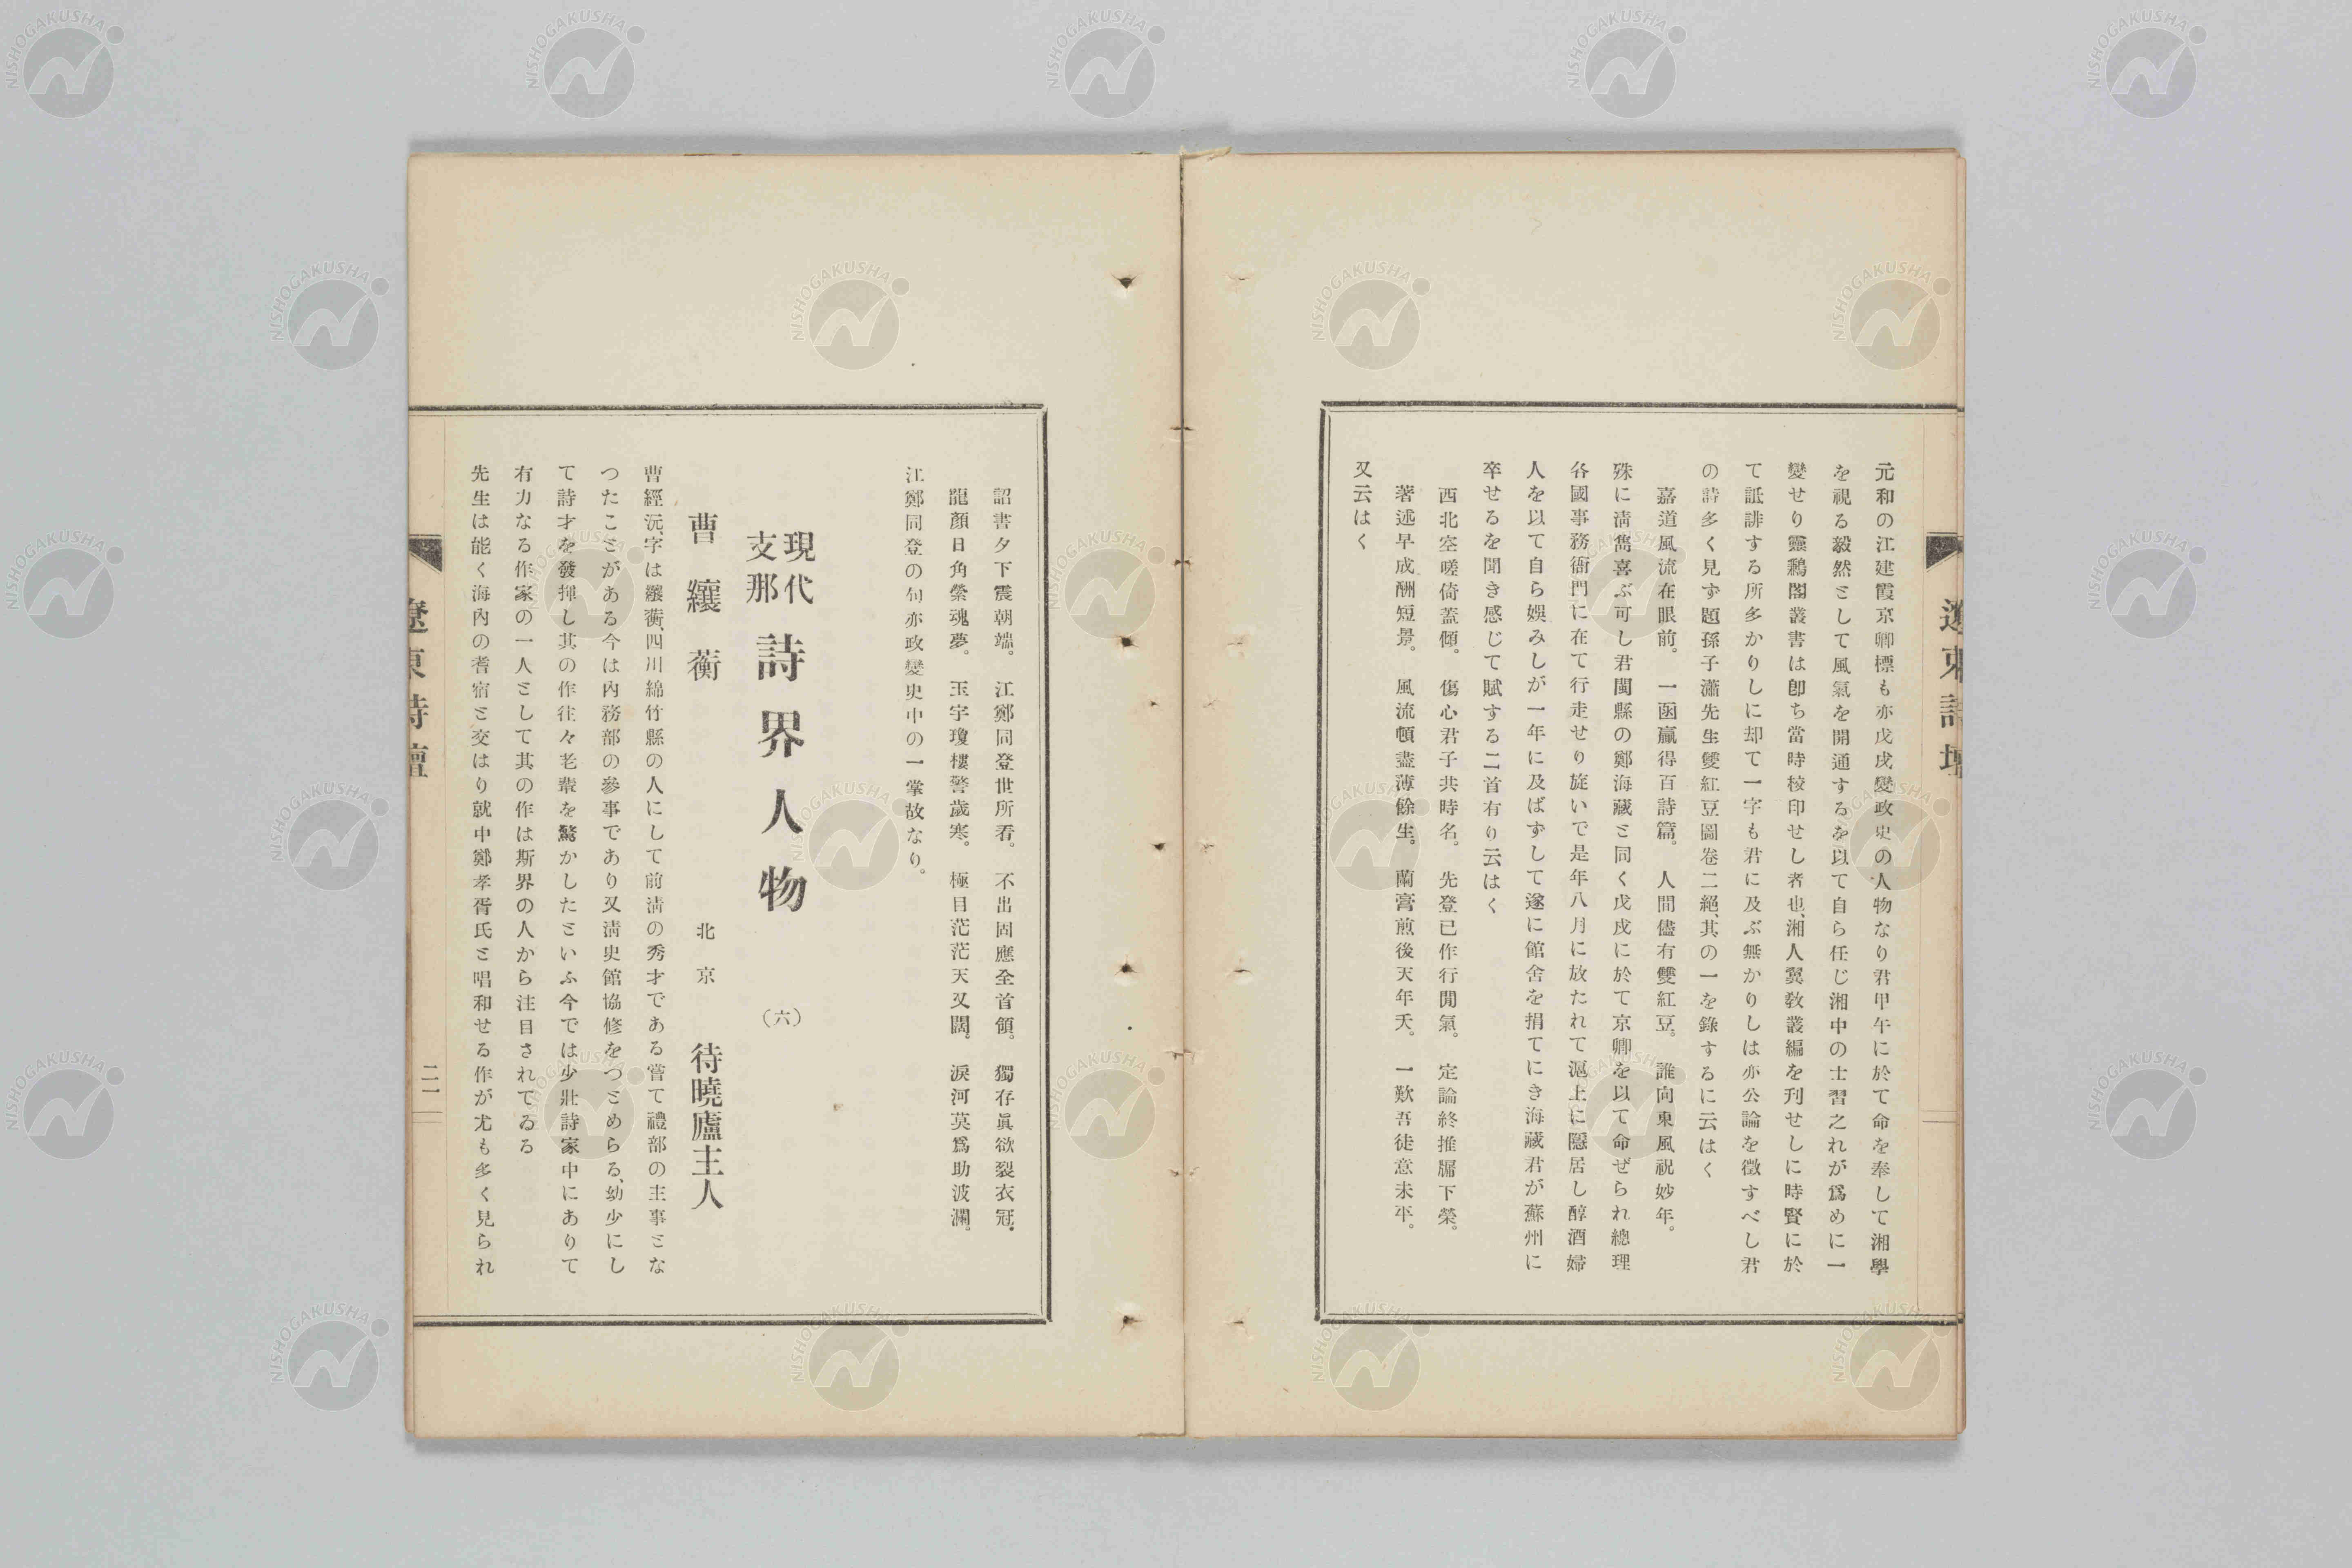 遼東詩壇
元和の江建霞京卿標も亦戊戌變政史の人物なり君甲午に於て命を奉して湘學
を視る毅然として風氣を開通するを以て自ら任じ湘中の士習之れが爲めに一
變せり靈鶼閣叢書は卽ち當時校印せし者也、湘人翼敎叢編を刊せしに時賢に於
て詆誹する所多かりしに却て一字も君に及ぶ無かりしは亦公論を徵すべし君
の詩多く見ず題孫子瀟先生雙紅豆圖卷二絕、其の一を錄するに云はく
嘉道風流在眼前。一函贏得百詩篇。人間儘有雙紅豆。誰向東風祝妙年。
殊に淸雋喜ぶ可し君閩縣の鄭海藏と同く戊戌に於て京卿を以て命ぜられ總理
各國事務衙門に在て行走せり旋いで是年八月に放たれて滬上に隱居し醇酒婦
人を以て自ら娛みしが一年に及ばずして遂に館舍を捐てにき海藏君が蘇州に
卒せるを聞き感じて賦する二首有り云はく
西北空嗟倚蓋傾。傷心君子共時名。先登已作行間氣。定論終推牖下榮。
著述早成酬短景。風流頓盡薄餘生。蘭膏煎後天年夭。一歎吾徒意未平。
又云はく
詔書夕下震朝端。江鄭同登世所看。不出固應全首領。獨存眞欲裂衣冠。
龍顏日角縈魂夢。玉宇瓊樓警歲寒。極目茫茫天又闊。淚河莫爲助波瀾。
江鄭同登の句亦政變史中の一掌故なり。
現代支那詩界人物（六）
曹纕蘅　北京　待曉廬主人
曹經沅、字は纕蘅、四川綿竹縣の人にして前淸の秀才である嘗て禮部の主事とな
つたことがある今は內務部の參事であり又淸史館協修をつとめらる、幼少にし
て詩才を發揮し其の作往々老輩を驚かしたといふ今では少壯詩家中にありて
有力なる作家の一人として其の作は斯界の人から注目されてゐる
先生は能く海內の耆宿と交はり就中鄭孝胥氏と唱和せる作が尤も多く見られ
遼東詩壇
二一